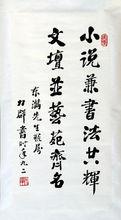 小说兼书法共辉
文坛并艺苑齐名
东瀛先生
书时年九二